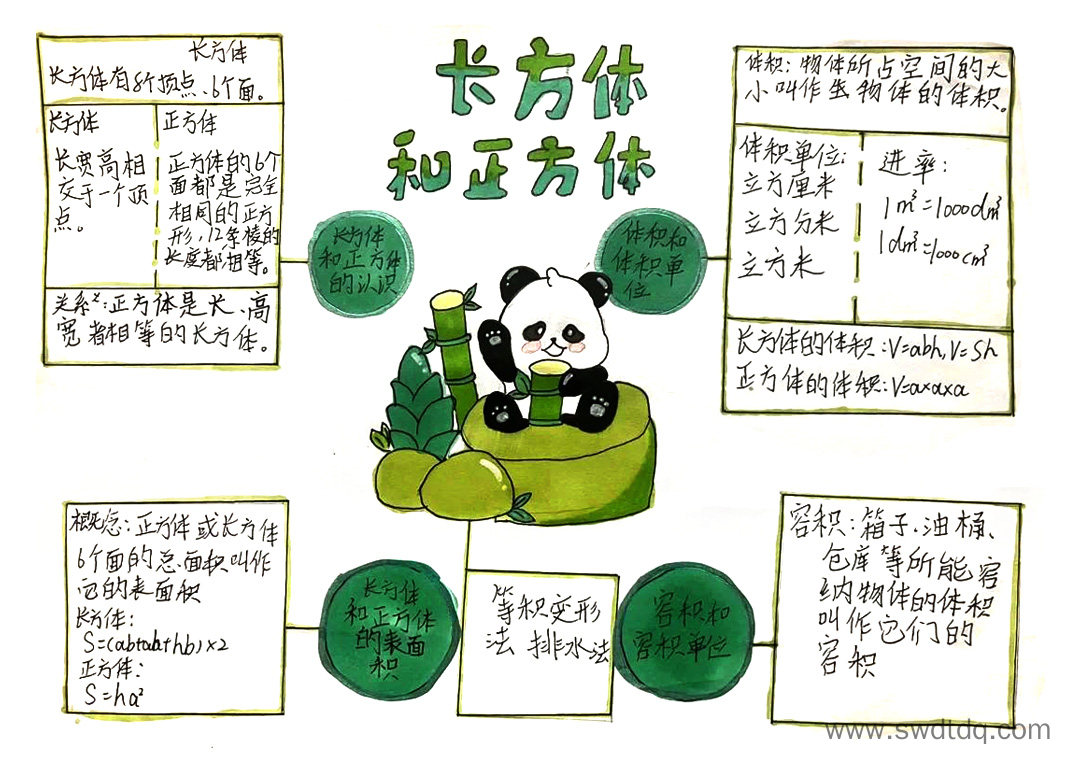 长方体
和正方体
长方体
长方体有8个顶点、6个面。
长方体
长宽高相
交于一个顶
点。
正方体
正方体的6个
面都是完全
相同的正方
形,12条棱的
长度都相等。
关系:正方体是长、高
宽者相等的长方体。
长方体
和正方体
的认识
体积和
体积单
位
体积:物体所占空间的大
小叫作 物体的体积。
体积单位:
立方厘米
立方分米
立方米
进率:
1m³=1000dm³
1dm³=1000cm³
长方体的体积:V=abh,V=Sh
正方体的体积:V=a×a×a
概念:正方体或长方体
6个面的总面积叫作
它的表面积
长方体:
×2
正方体:
S=ha²
长方体
和正方体
的表面
积
等积变形
法 排水法
容积和
容积单位
容积:箱子、油桶、
仓库等所能容
纳物体的体积
叫作它们的
容积
www.swdtdq.com